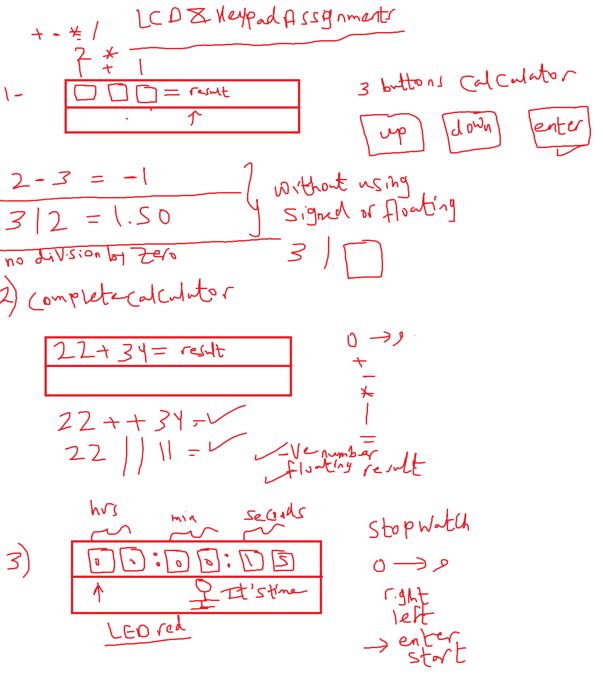 LCD & Keypad Assignments
+ - * /
2 *
1 + 1
1- = result
↑
3 buttons calculator
up down enter
2 - 3 = -1
3 / 2 = 1.50
without using
signed or floating
no division by zero
3 /
2) complete calculator
22 + 34 = result
0 → 9
+
-
*
/
=
22 + + 34 =
22 // 11 =
-ve number
floating result
hrs min seconds
3) 0 1 : 0 0 : 1 5
↑ It's time
LED red
stop watch
0 → 9
right
left
→ enter
start